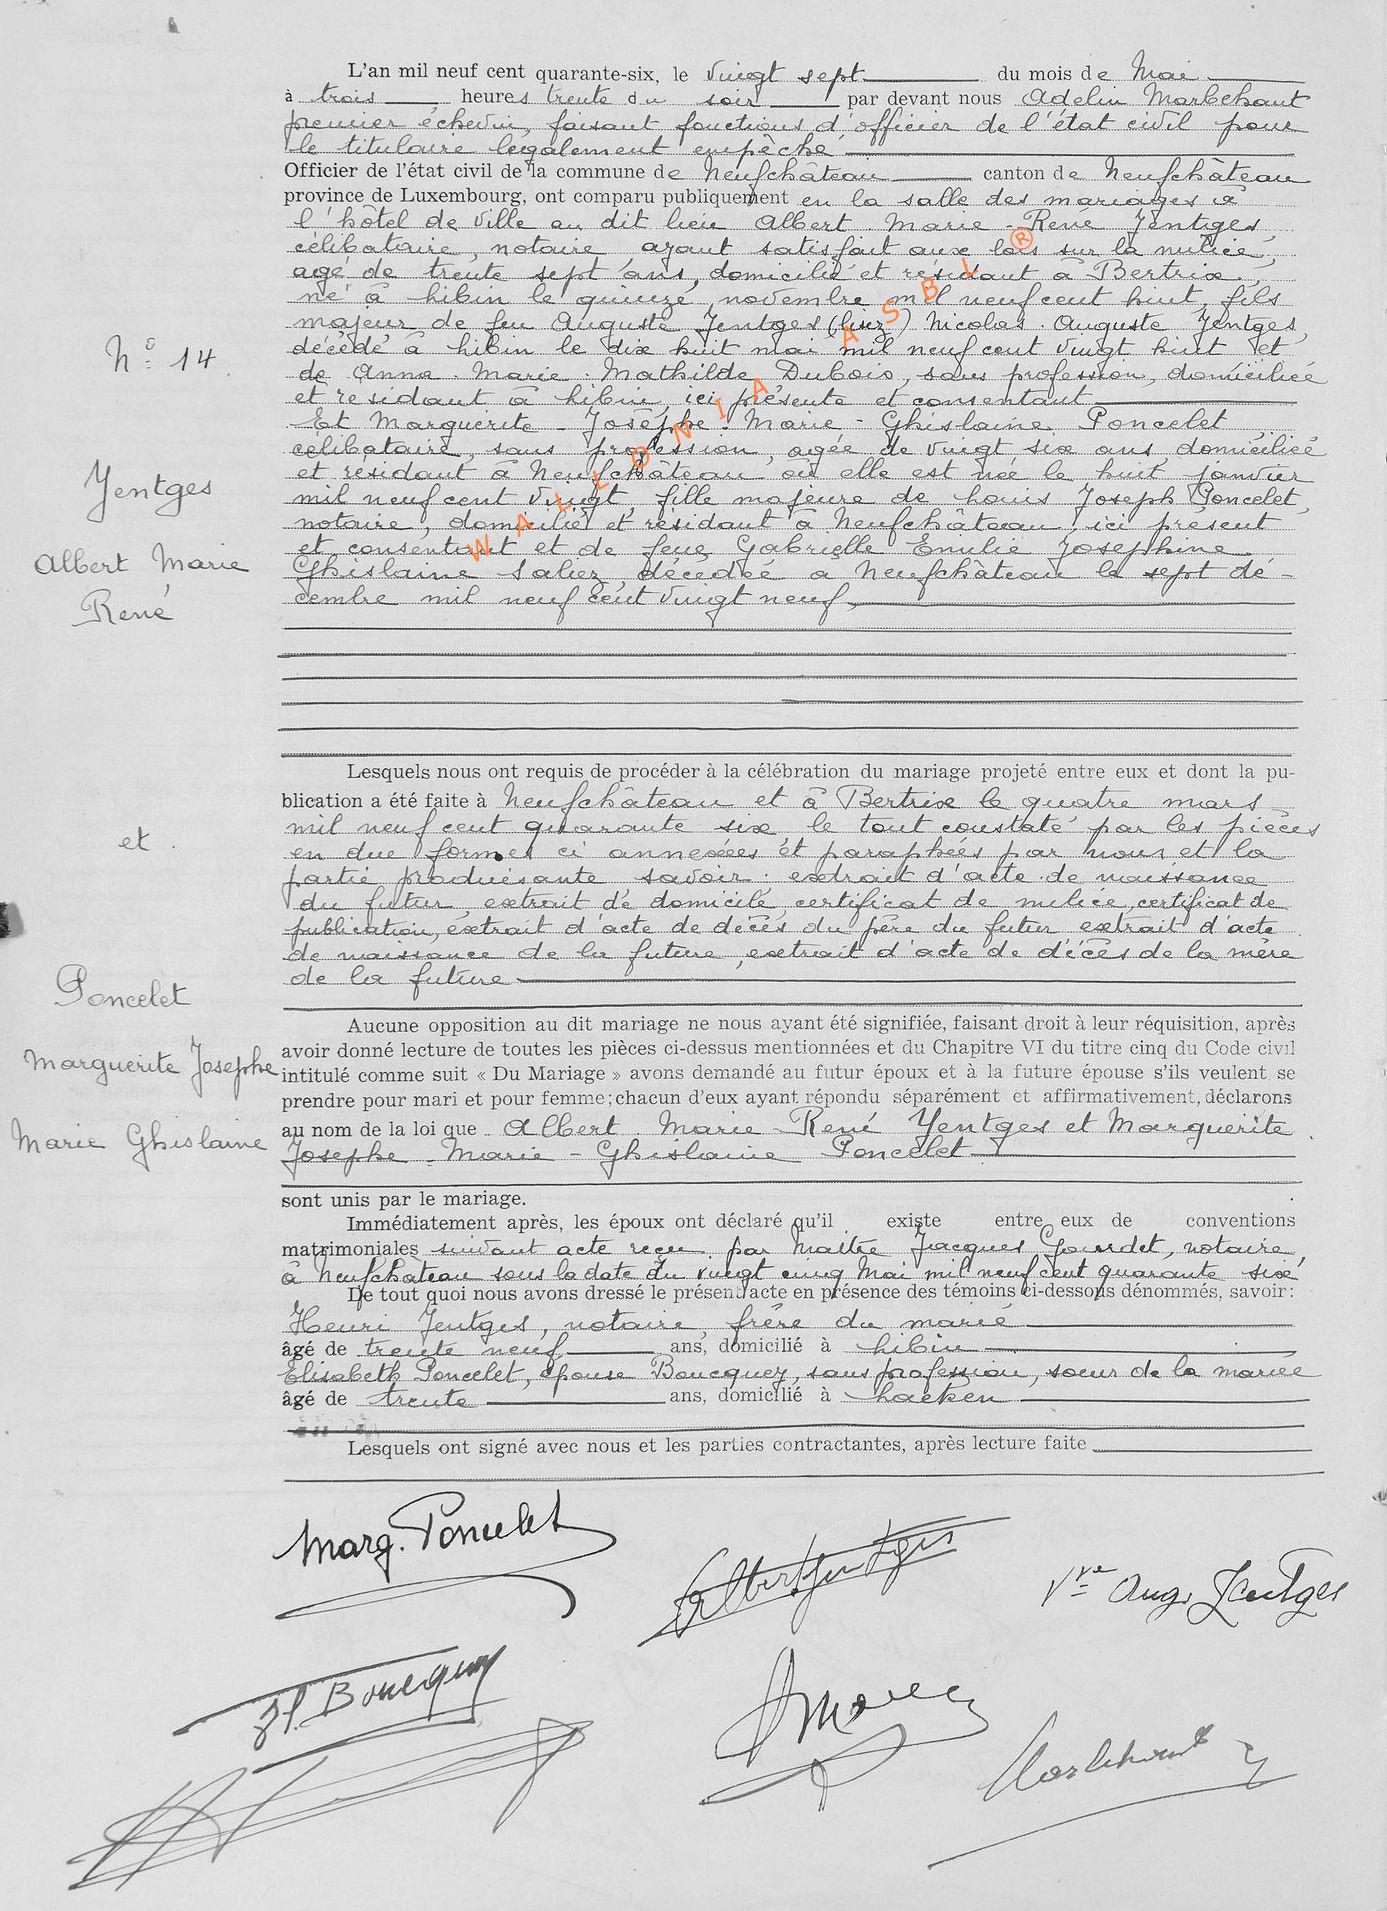 L'an mil neuf cent quarante-six, le vingt sept du mois de Mai
à trois heures trente du soir par devant nous Adelin Marbehant
premier échevin, faisant fonctions d'officier de l'état civil pour
le titulaire legalement empêché
Officier de l'état civil de la commune de Neufchâteau canton de Neufchâteau
province de Luxembourg, ont comparu publiquement en la salle des mariages à
l'hôtel de ville au dit lieu Albert - Marie - René Jentges,
célibataire, notaire, ayant satisfait aux lois sur la milice,
agé de trente sept ans, domicilié et résidant à Bertrix,
né à Libin le quinze novembre mil neuf cent huit, fils
majeur de feu Auguste Jentges (lisez) Nicolas - Auguste Jentges,
décédé à Libin le dix huit mai mil neuf cent vingt huit et
N° 14.
de Anna - Marie - Mathilde Dubois, sans profession, domiciliée
et résidant à Libin, ici présente et consentant
Et Marguerite - Josèphe - Marie - Ghislaine Poncelet
célibataire, sans profession, agée de vingt six ans, domiciliée
et résidant à Neufchâteau où elle est née le huit janvier
Yentges
mil neuf cent vingt, fille majeure de Louis Joseph Poncelet,
notaire, domicilié et résidant à Neufchâteau, ici présent
et consentant et de feue Gabrielle Emilie Josephine
Albert Marie
Ghislaine Saliez, décédée a Neufchâteau le sept dé-
cembre mil neuf cent vingt neuf,
René
WALLONIA ASBL ®
Lesquels nous ont requis de procéder à la célébration du mariage projeté entre eux et dont la pu-
blication a été faite à Neufchâteau et à Bertrix le quatre mars
mil neuf cent quarante six, le tout constaté par les pièces
et.
en due formes ci annexées et paraphées par nous et la
partie produisante savoir: extrait d'acte de naissance
du futur, extrait de domicile, certificat de milice, certificat de
publication, extrait d'acte de décès du père du futur extrait d'acte
de naissance de la future, extrait d'acte de décès de la mère
de la future
Poncelet
Marguerite Josephe
Marie Ghislaine
Aucune opposition au dit mariage ne nous ayant été signifiée, faisant droit à leur réquisition, après
avoir donné lecture de toutes les pièces ci-dessus mentionnées et du Chapitre VI du titre cinq du Code civil
intitulé comme suit « Du Mariage » avons demandé au futur époux et à la future épouse s'ils veulent se
prendre pour mari et pour femme; chacun d'eux ayant répondu séparément et affirmativement, déclarons
au nom de la loi que Albert - Marie - René Yentges et Marguerite
Josephe - Marie - Ghislaine Poncelet
sont unis par le mariage.
Immédiatement après, les époux ont déclaré qu'il existe entre eux de conventions
matrimoniales suivant acte reçu par Maître Jacques Gourdet, notaire,
à Neufchâteau sous la date du vingt cinq Mai mil neuf cent quarante six
De tout quoi nous avons dressé le présent acte en présence des témoins ci-dessous dénommés, savoir:
Henri Jentges, notaire, frère du marié
âgé de trente neuf ans, domicilié à Libin
Elisabeth Poncelet, épouse Boucquey, sans profession, soeur de la mariée
âgé de trente ans, domicilié à Laeken
Lesquels ont signé avec nous et les parties contractantes, après lecture faite
Marg. Poncelet
Albert Jentges
Vve Aug. Jentges
El. Boucquey
Marbehant